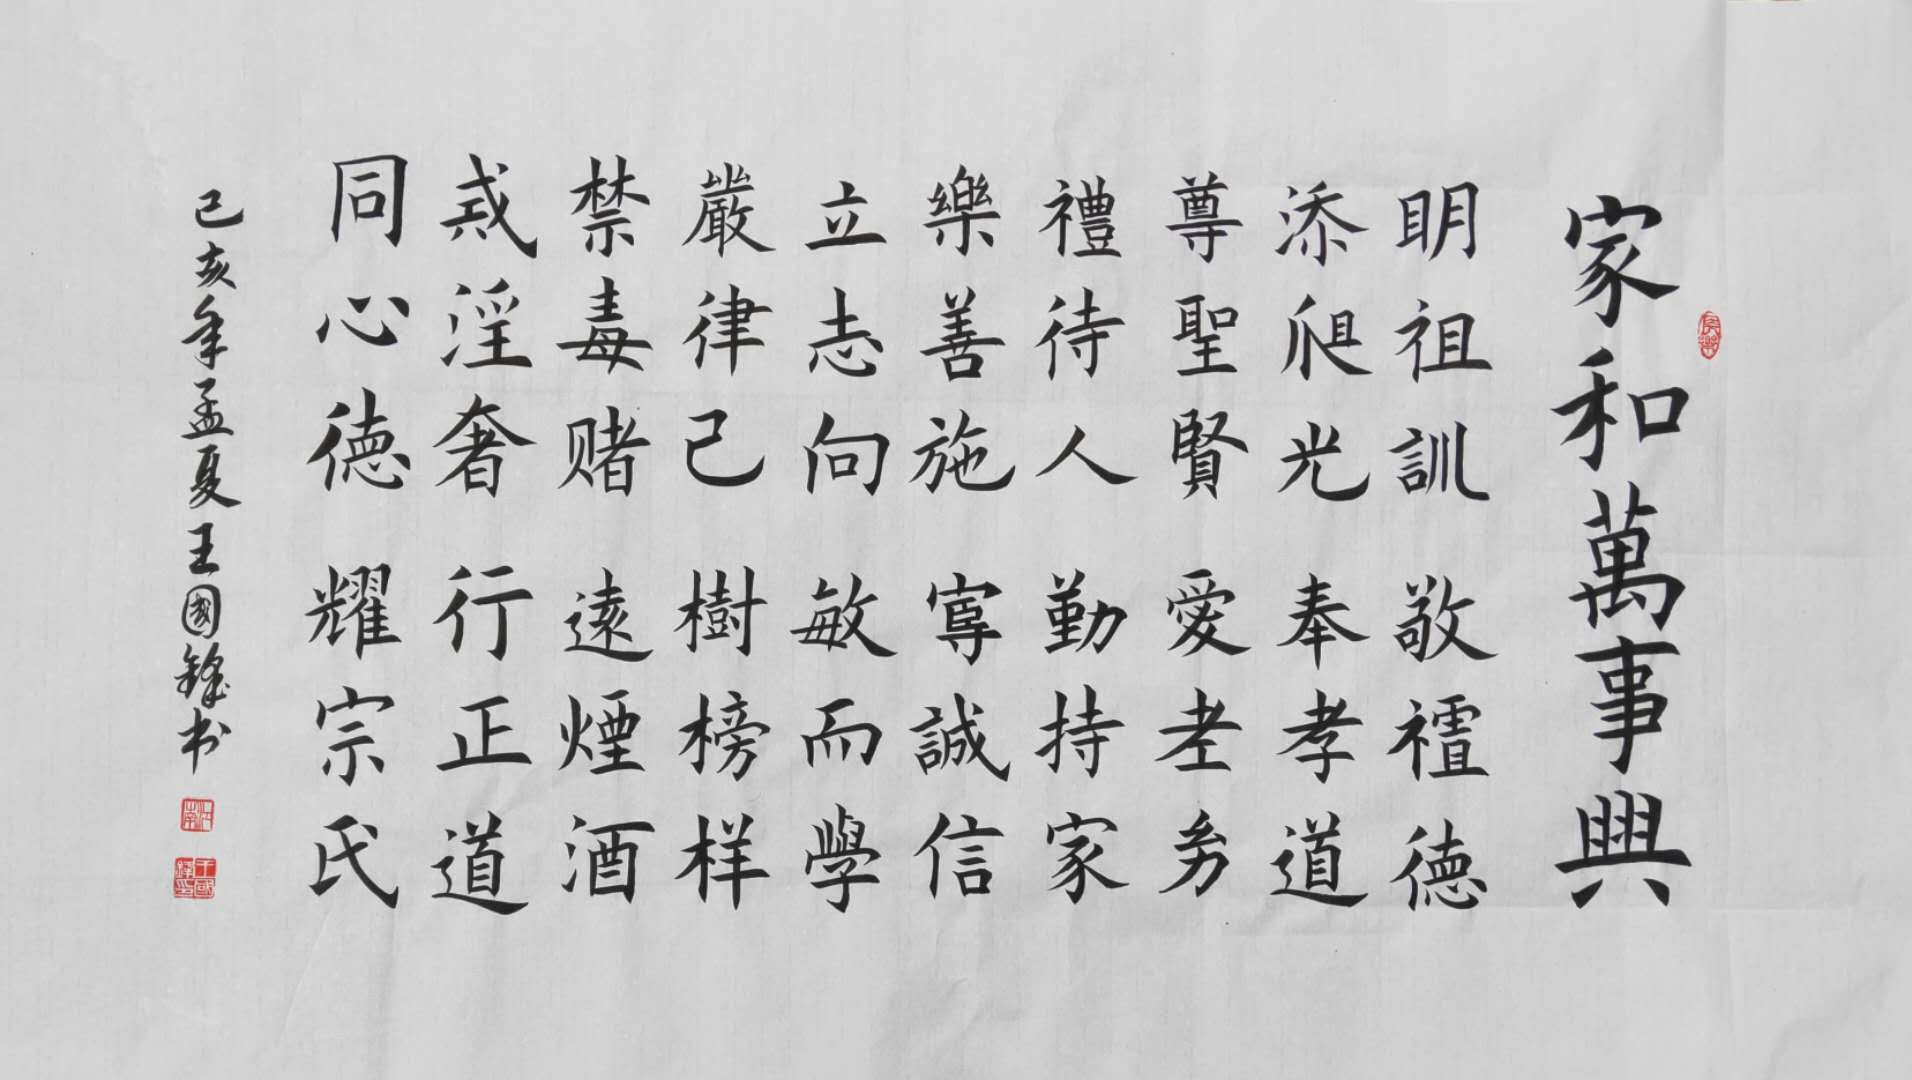 家和萬事興
明祖訓 敬德
添爼光 奉孝道
尊聖賢 愛老幼
禮待人 勤持家
樂善施 誠信
立志向 敏而學
嚴律己 樹榜样
禁毒赌 遠煙酒
戒淫奢 行正道
同心德 耀宗氏
己亥年孟夏王國鋒书